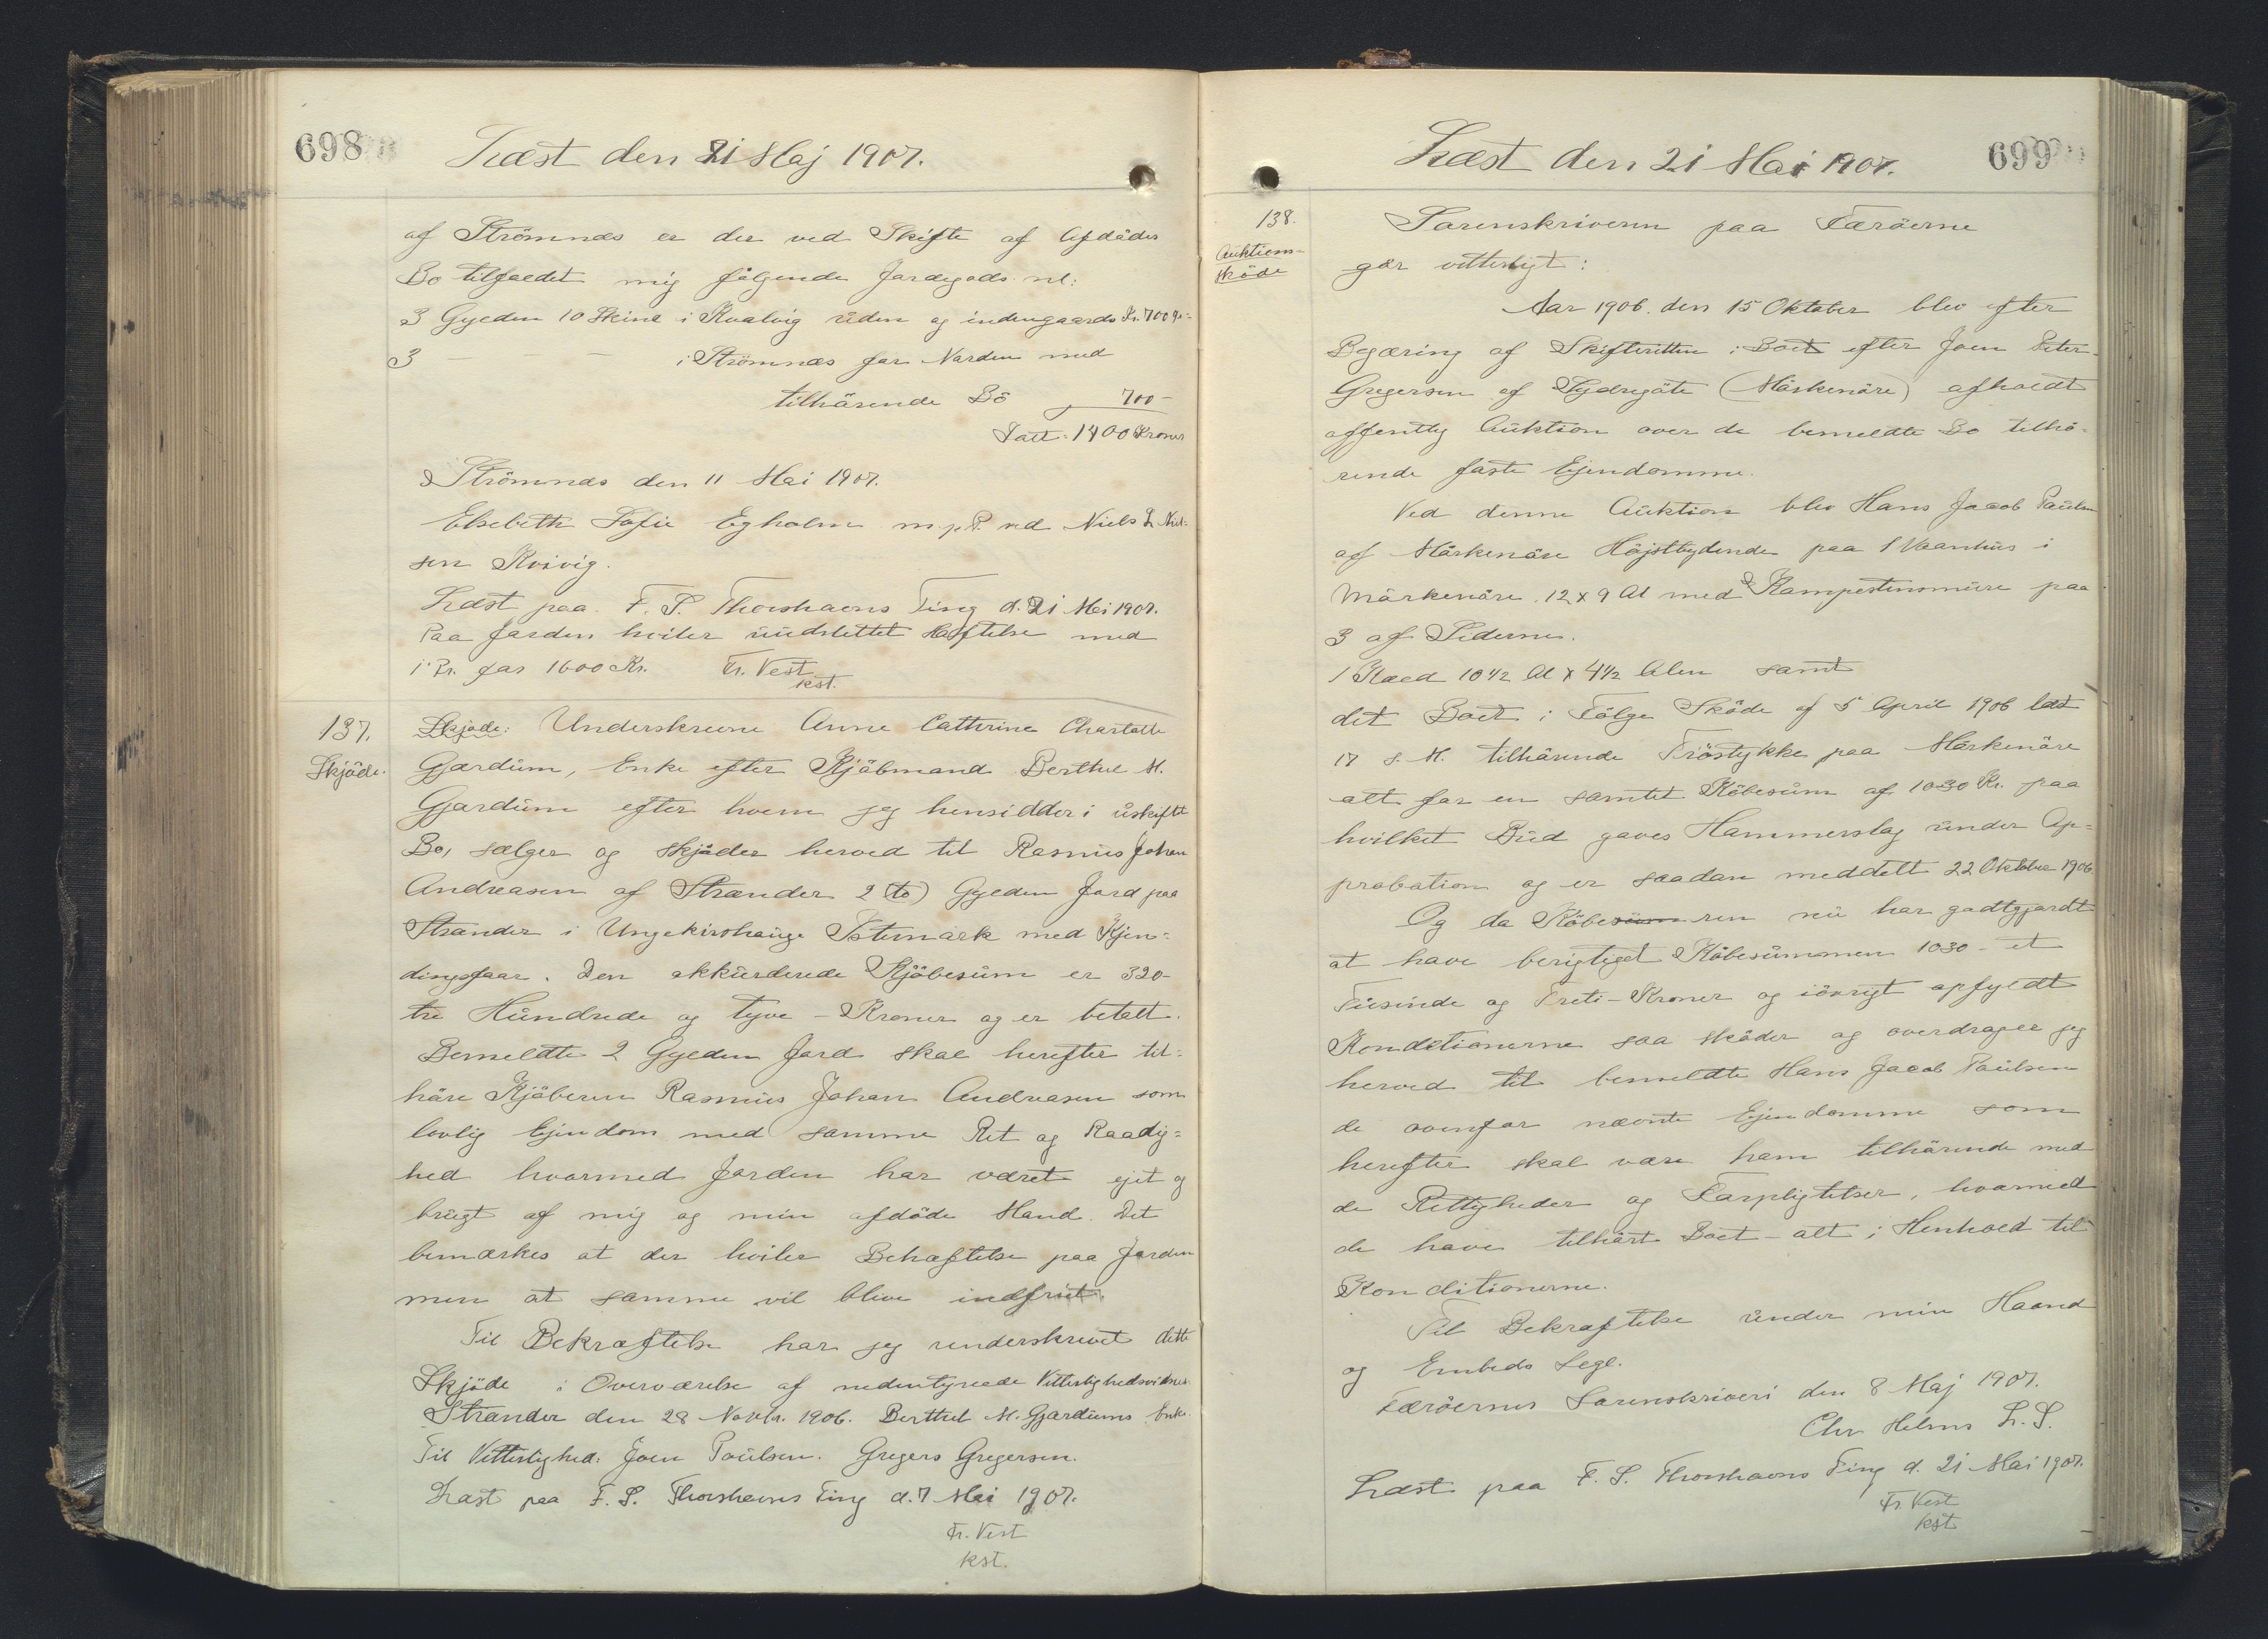 698
Læst den 21 Maj 1907.
af Strömnæs er der ved Skifte af Afdödes
Bo tilfaldet mig fölgende Jordegods nl:
3 Gylden 10 Skind i Kvalvig uden og indengaards Kr. 700
3 — — i Strömnæs for Norden med
tilhörende Bö 700 -
Ialt: 1400 Kroner
Strömnæs den 11 Mai 1907.
Elsebeth Sofie Egholm m.p.P. ved Niels Niel-
sen Kvivig.
Læst paa F. S. Thorshavns Ting d. 21 Mai 1907.
Paa Jorden hviler uudslettet Hæftelse med
1' Pr. for 1600 Kr. Fr. Vest
kst.
137.
Skjöde.
Skjöde: Underskrevne Anne Cathrine Charlotte
Gjærdum, Enke efter Kjöbmand Berthel M.
Gjærdum efter hvem jeg hensidder i uskiftet
Bo, sælger og skjöder herved til Rasmus Johan
Andreasen af Strænder 2 (to) Gylden Jord paa
Strænder i Ungekirshauge Istemark med Kjen-
dingsfaar. Den akkurderede Kjöbesum er 320-
tre Hundrede og tyve - Kroner og er betalt.
Bemeldte 2 Gylden Jord skal herefter til-
höre Kjöberen Rasmus Johan Andreasen som
lovlig Ejendom med samme Ret og Raadig-
hed hvormed Jorden har været ejet og
brugt af mig og min afdöde Mand. Det
bemærkes at der hviler Behæftelse paa Jorden
men at samme vil blive indfriet.
Til Bekræftelse har jeg underskrevet dette
Skjöde i Overværelse af nedentegnede Vitterlighedsvidner.
Strænder den 28 Novbr. 1906. Berthel M. Gjærdums Enke.
Til Vitterlighed: Joen Poulsen. Gregers Gregersen.
Læst paa F. S. Thorshavns Ting d. 7 Mai 1907.
Fr. Vest
kst.
Læst den 21 Mai 1907.
699
138.
Auktions-
sköde
Sorenskriveren paa Færöerne
gör vitterligt:
Aar 1906. den 15 Oktober blev efter
Begæring af Skifteretten i Boet efter Joen Peter
Gregersen af Sydregöte (Mörkenöre) afholdt
offentlig Auktion over de bemeldte Bo tilhö-
rende faste Ejendomme.
Ved denne Auktion blev Hans Jacob Paulsen
af Mörkenöre Höjstbydende paa 1 Vaanhus i
Mörkenöre 12 x 9 Al med Kampestensmure paa
3 af Siderne.
1 Kaed 10 1/2 Al x 4 1/2 Alen samt
det Boet i Fölge Sköde af 5 April 1906 læst
17 s. M. tilhörende Tröstykke paa Mörkenöre
alt for en samlet Köbesum af 1030 Kr. paa
hvilket Bud gaves Hammerslag under Ap-
probation og er saadan meddelt 22 Oktober 1906.
Og da Köbesum ren nu har godtgjordt
at have berigtiget Köbesummen 1030 - et
Tusinde og Treti - Kroner og iövrigt opfyldt
Konditionerne saa sköder og overdrager jeg
herved til bemeldte Hans Jacob Paulsen
de ovenfor nævnte Ejendomme som
herefter skal være ham tilhörende med
de Rettigheder og Forpligtelser, hvormed
de have tilhört Boet - alt i Henhold til
Konditionerne.
Til Bekræftelse under min Haand
og Embeds Segl.
Færöernes Sorenskriveri den 8 Maj 1907.
Chr Helms L. S.
Læst paa F. S. Thorshavns Ting d. 21 Mai 1907.
Fr. Vest
kst